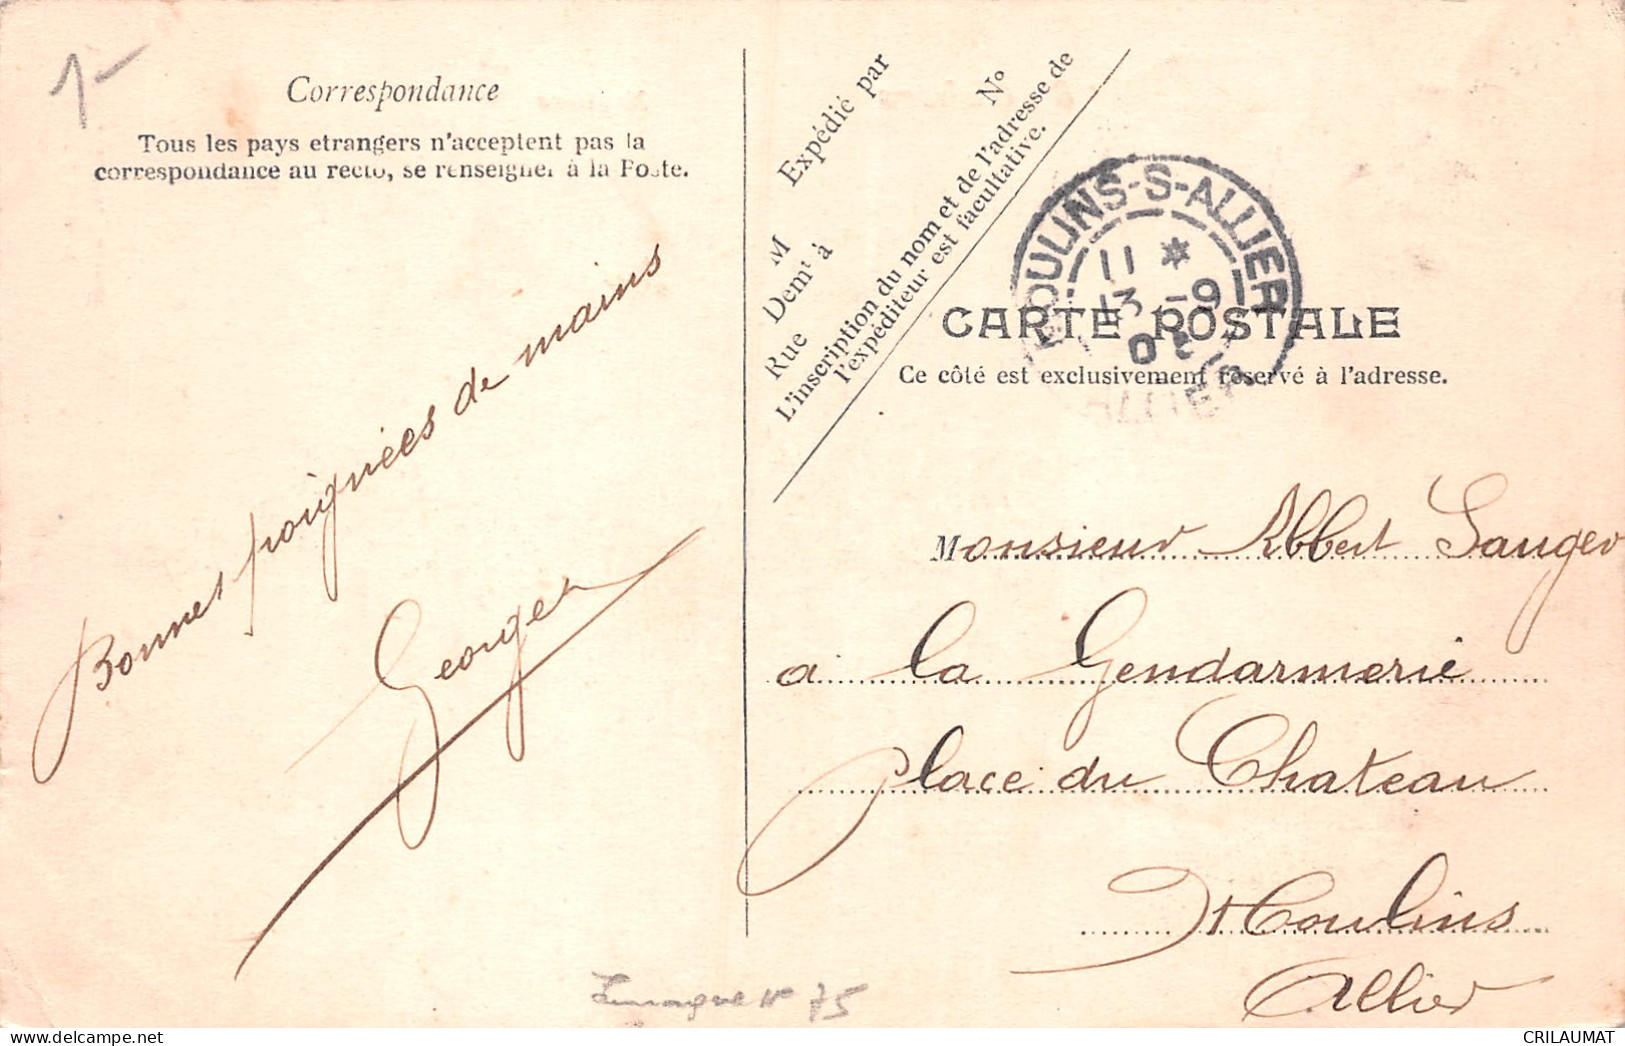 1-
Correspondance
Tous les pays etrangers n'acceptent pas la
correspondance au recto, se renseigner à la Poste.
Bonnes poignées de mains
Georges
Expédié par
M
Nº
Demt à
Rue
L'inscription du nom et de l'adresse de
l'expéditeur est facultative.
MOULINS-S-ALLIER
11 *
13 -9
ALLIER
CARTE POSTALE
Ce côté est exclusivement réservé à l'adresse.
Monsieur Albert Sauger
a la Gendarmerie
Place du Chateau
Moulins
Allier
75
CRILAUMAT